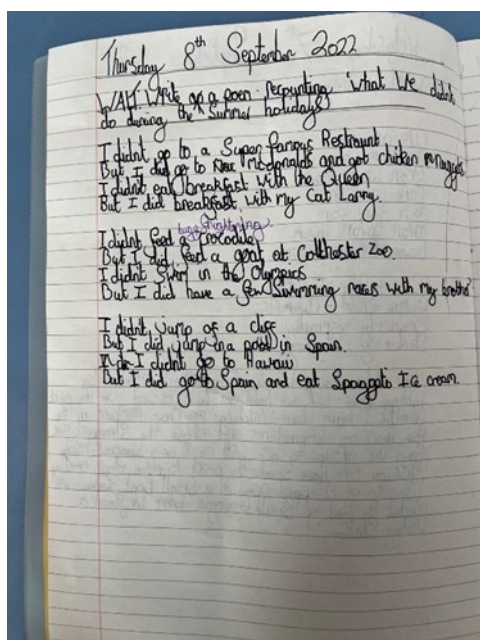 Thursday 8th September 2022
WALT: Write a poem recounting what we didn't
do during the Summer holidays
I didnt go to a Super famous Restraunt
But I did go to Mcdonalds and got chicken nuggets
I didnt eat breakfast with the Queen
But I did breakfast with my Cat Larry.
huge frightening
I didnt feed a crocodile
But I did feed a goat at Colchester Zoo.
I didnt Swim in the Olympics
But I did have a few Swimming races with my brother
I didnt jump of a cliff
But I did jump in a pool in Spain.
I didnt go to Hawaii
But I did go to Spain and eat Spaggeto Ice cream.